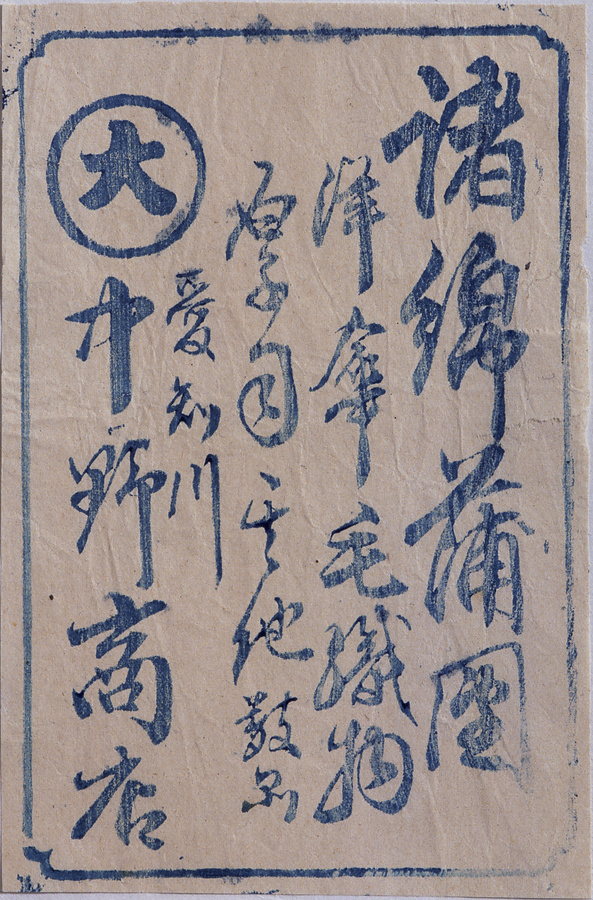 諸綿蒲團
洋傘毛織物
帽子目其他敷品
愛知川
大
中野商店